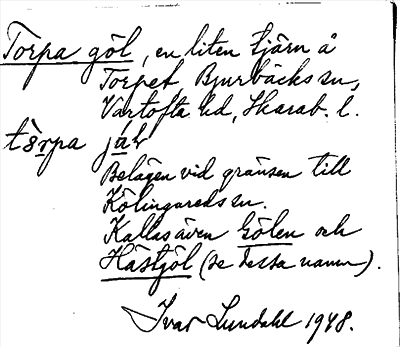 Torpa göl, en liten tjärn å
Torpet Bjurbäcks sn,
Vartofta hd, Skarab. l.
tò̀rpa jöl
Belägen vid gränsen till
Kölingareds sn.
Kallas även Gölen och
Hästjöl (se dessa namn).
Ivar Lundahl 1948.